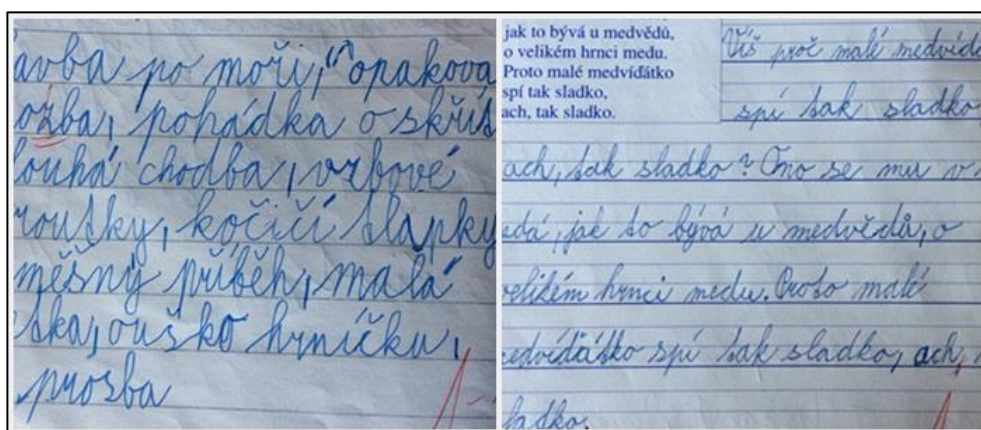 avba po moři, opakova
ožba, pohádka o skřít
louhá chodba, vrbové
routky, kočičí tlapky
měšný příběh, malá
tka, ouško hrníčku,
prosba
1-
jak to bývá u medvědů,
o velikém hrnci medu.
Proto malé medvíďátko
spí tak sladko,
ach, tak sladko.
Víš proč malé medvíďá
spí tak sladko,
ach, tak sladko? Ono se mu v
edá, jak to bývá u medvědů, o
velikém hrnci medu. Proto malé
edvíďátko spí tak sladko, ach,
ladko.
1